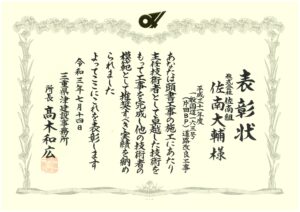 表彰状
株式会社 佐南組
佐南大輔様
平成三十一年度
一般国道一六三号
道路改良工事
あなたは頭書工事の施工にあたり
主任技術者として卓越した技術を
もって工事を完成し他の技術者の
模範として推奨すべき実績を納め
られました
よってここにこれを表彰します
令和三年七月十四日
三重県津建設事務所
所長 高木和広